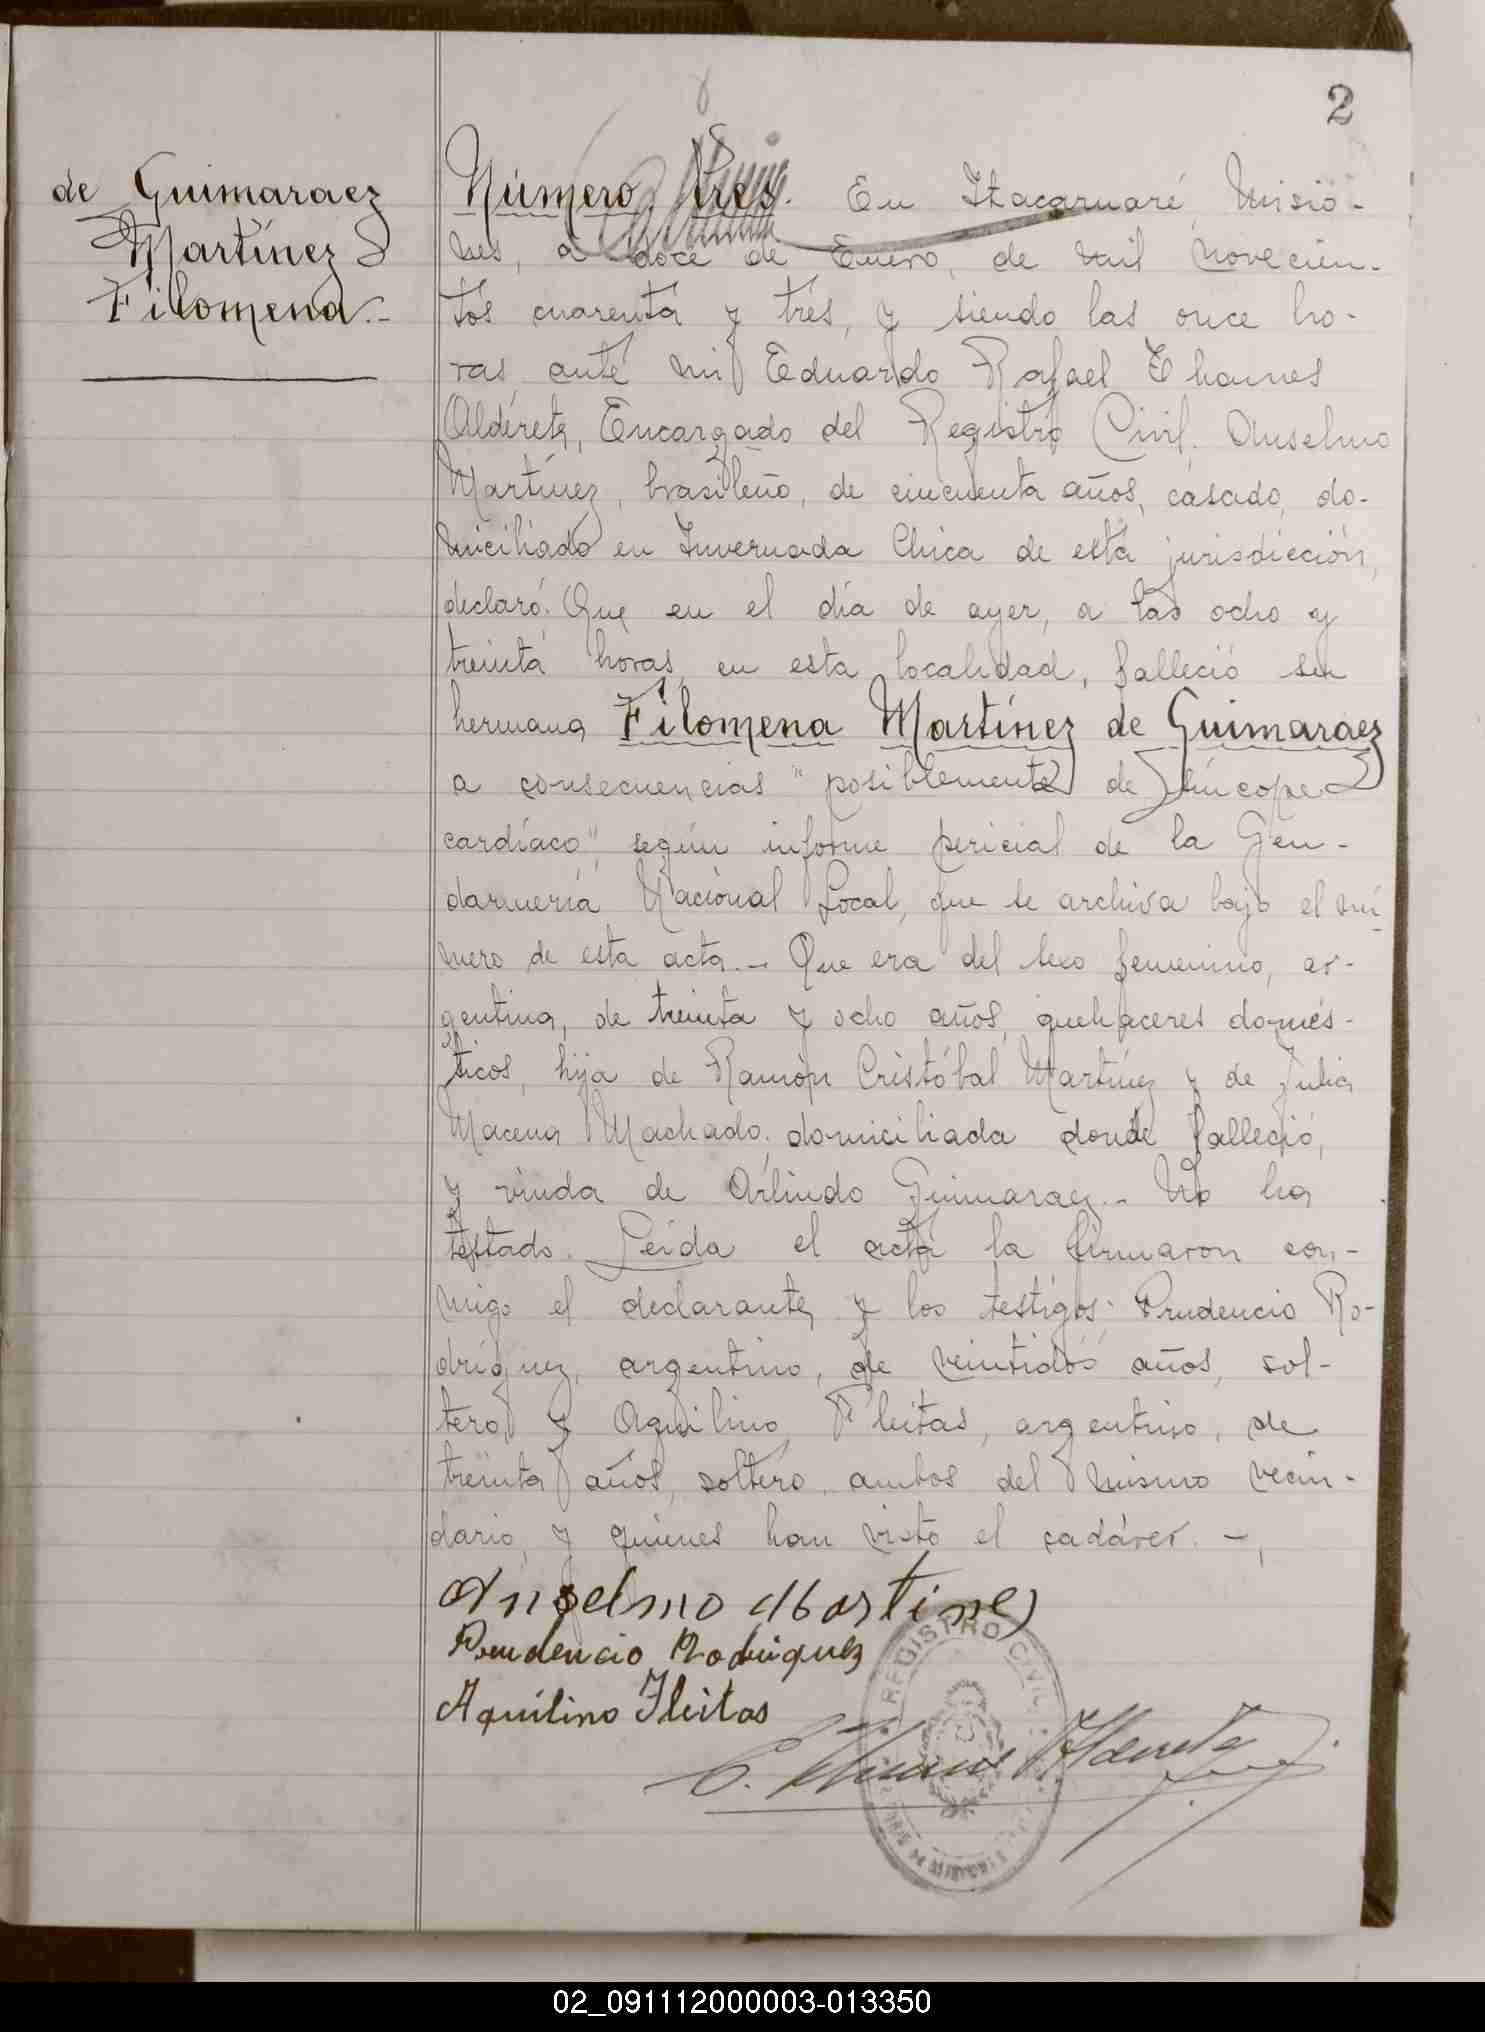 2
de Guimaraez
Martínez
Filomena.-
Número Tres. En Itacaruaré, Misio-
nes, a doce de Enero, de mil novecien-
tos cuarenta y tres, y siendo las once ho-
ras, ante mi Eduardo Rafael Thames
Aldereta, Encargado del Registro Civil, Anselmo
Martínez, brasileño, de cincuenta años, casado, do-
miciliado en Invernada Chica de esta jurisdicción,
declaró: Que en el día de ayer, a las ocho y
treinta horas, en esta localidad, falleció su
hermana Filomena Martínez de Guimaraez
a consecuencias "posiblemente de síncope
cardíaco", según informe pericial de la Gen-
darmería Nacional Local, que se archiva bajo el nú-
mero de esta acta.- Que era del sexo femenino, ar-
gentina, de treinta y ocho años, quehaceres domés-
ticos, hija de Ramón Cristóbal Martínez y de Julia
Macena Machado, domiciliada donde falleció,
y viuda de Arlindo Guimaraez.- No ha
testado. Leída el acta la firmaron con-
migo el declarante y los testigos: Prudencio Ro-
dríguez, argentino, de veintidós años, sol-
tero y Aquilino Fleitas, argentino, de
treinta años, soltero, ambos del mismo vecin-
dario, y quienes han visto el cadáver.-
Anselmo Martinez
Prudencio Rodriguez
Aquilino Fleitas
REGISTRO CIVIL
02_091112000003-013350